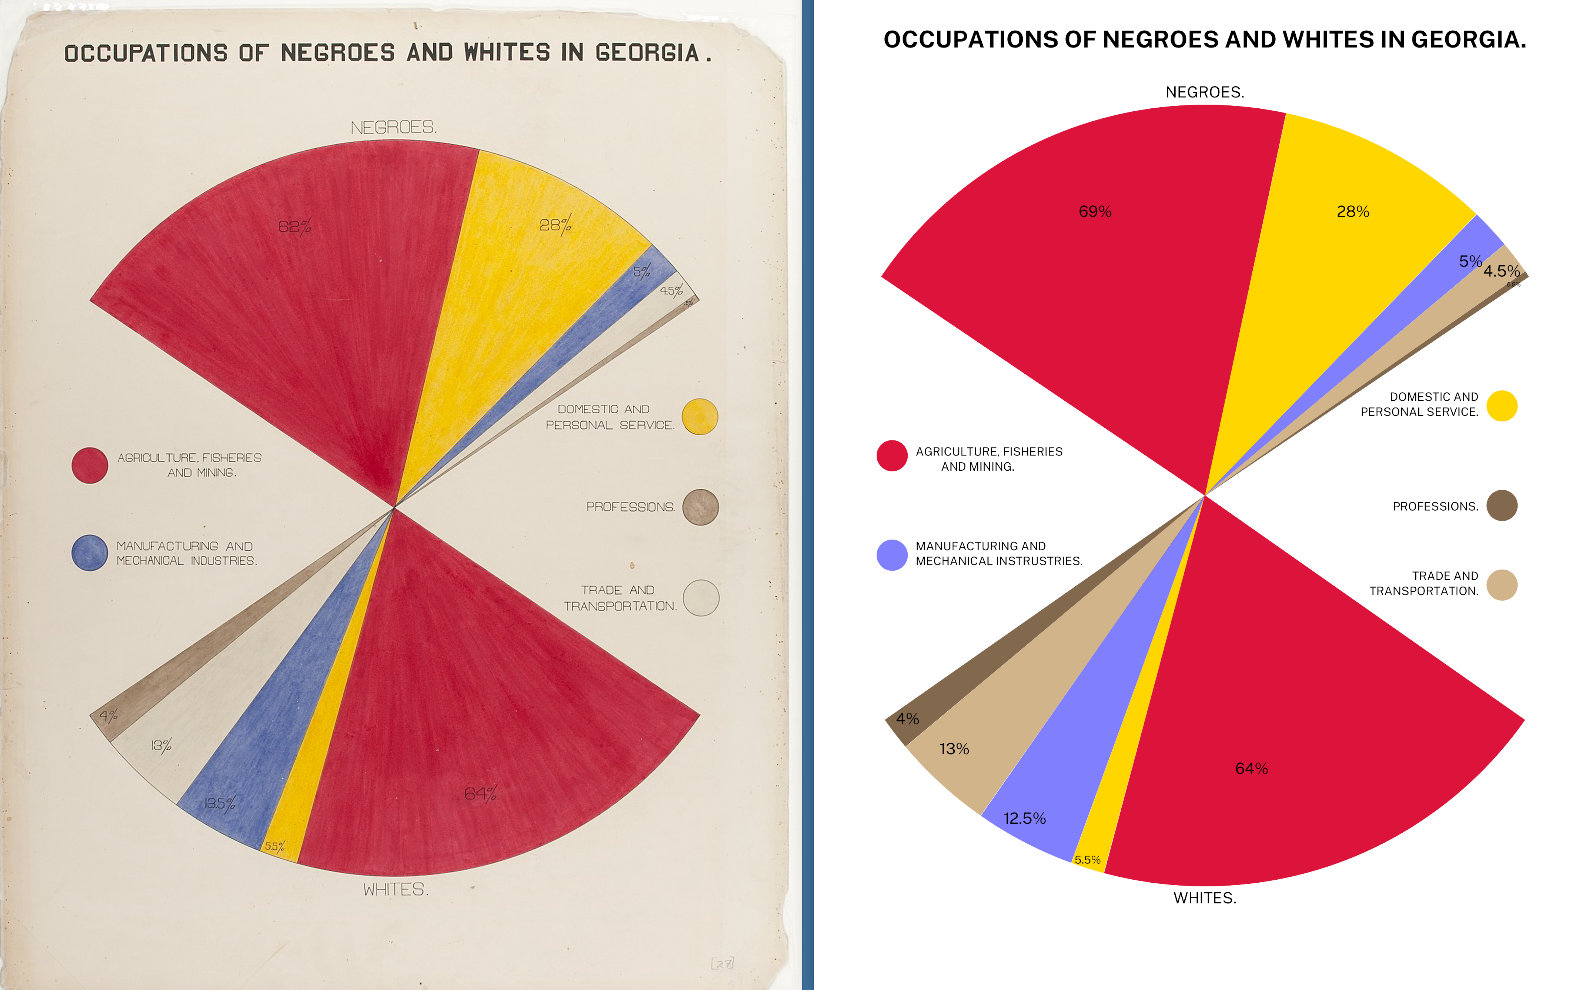 OCCUPATIONS OF NEGROES AND WHITES IN GEORGIA.
NEGROES.
62%
28%
5%
4.5%
DOMESTIC AND
PERSONAL SERVICE.
AGRICULTURE, FISHERIES
AND MINING.
PROFESSIONS.
MANUFACTURING AND
MECHANICAL INDUSTRIES.
TRADE AND
TRANSPORTATION.
4%
13%
13.5%
5.5%
64%
WHITES.
[27]
OCCUPATIONS OF NEGROES AND WHITES IN GEORGIA.
NEGROES.
69%
28%
5%
4.5%
DOMESTIC AND
PERSONAL SERVICE.
AGRICULTURE, FISHERIES
AND MINING.
PROFESSIONS.
MANUFACTURING AND
MECHANICAL INSTRUSTRIES.
TRADE AND
TRANSPORTATION.
4%
13%
12.5%
5.5%
64%
WHITES.